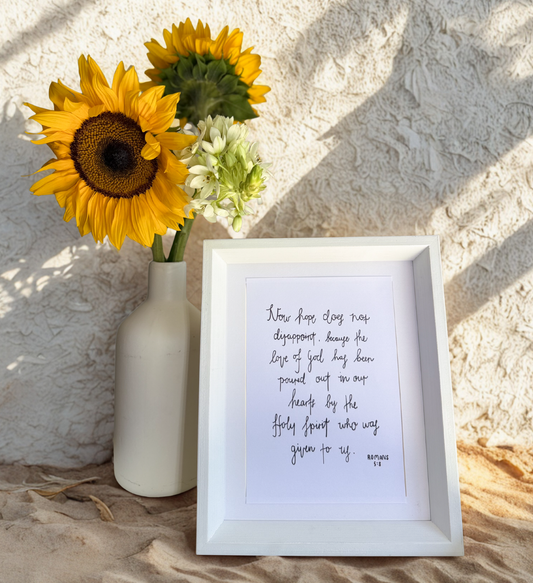 Now hope does not
disappoint, because the
love of God has been
poured out in our
hearts by the
Holy Spirit who was
given to us.
ROMANS
5:8